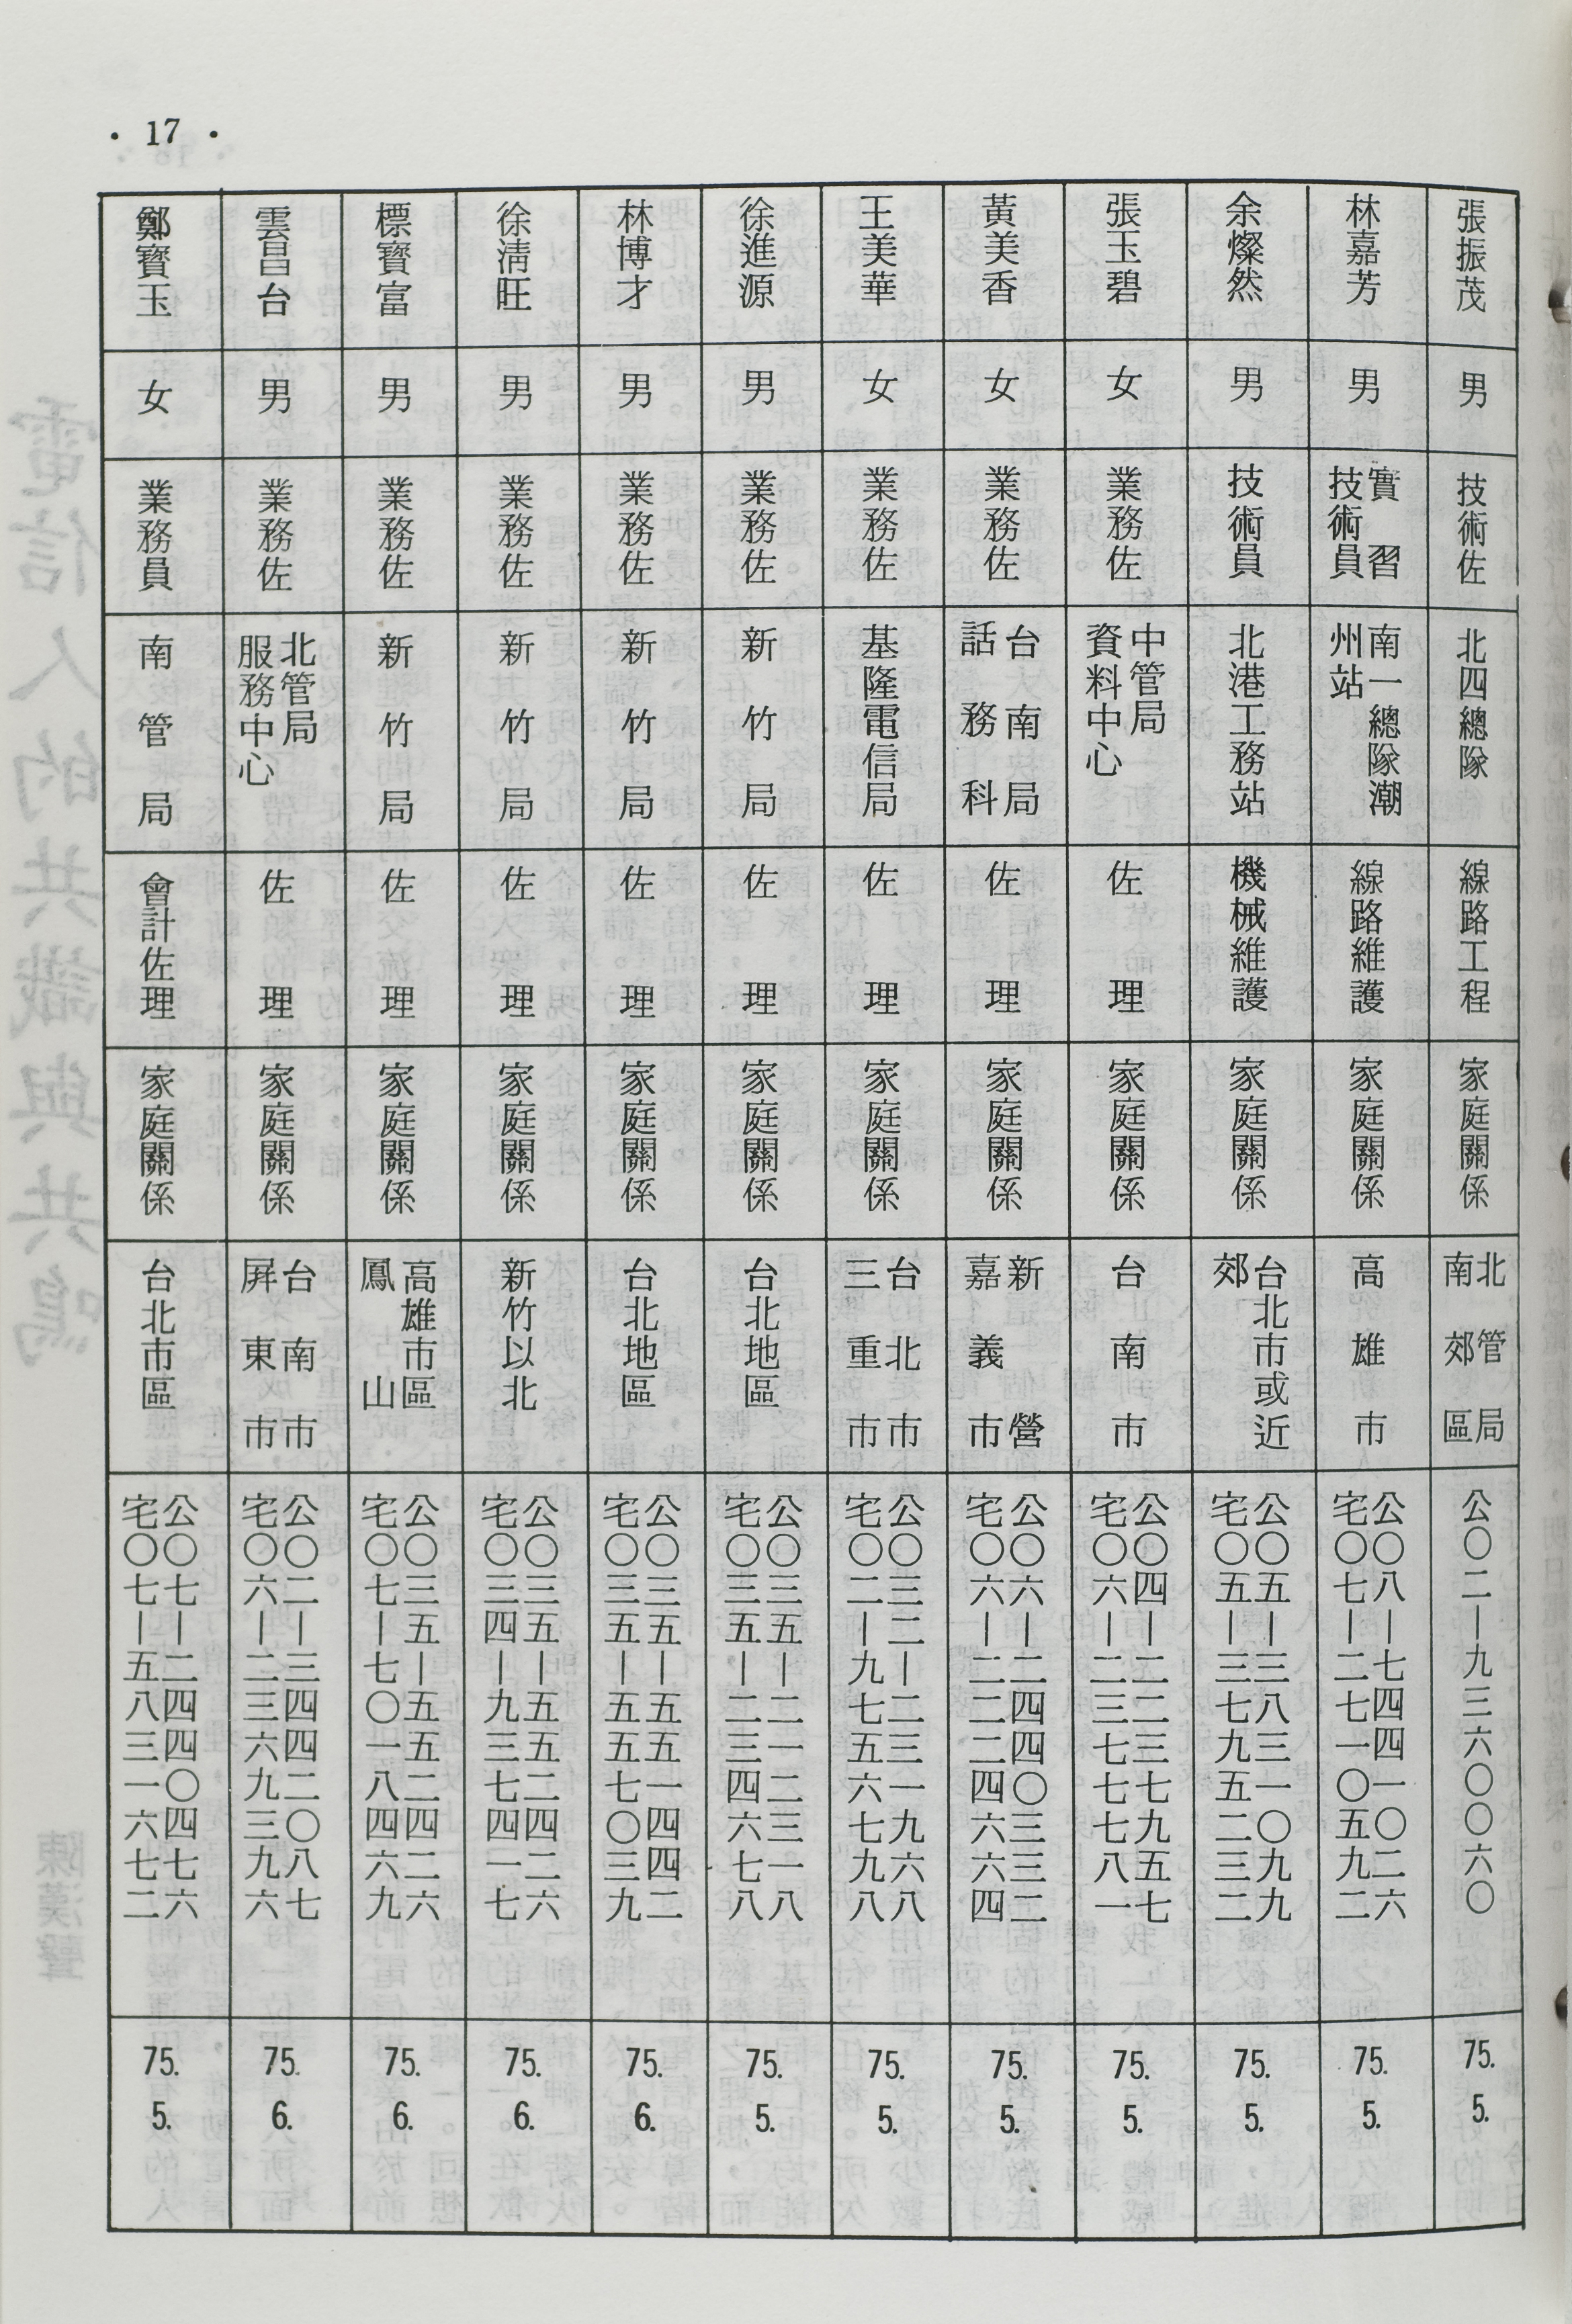 • 17 •
張振茂
男
技術佐
北四總隊
線路工程
家庭關係
北管局
南郊區
公〇二—九三六〇〇六〇
75.
5.
林嘉芳
男
實習
技術員
南一總隊潮
州站
線路維護
家庭關係
高雄市
公〇八—七四四一〇二六
宅〇七—二七一〇五九二
75.
5.
余燦然
男
技術員
北港工務站
機械維護
家庭關係
台北市或近
郊
公〇五—三八三一〇九九
宅〇五—三七九五二三二
75.
5.
張玉碧
女
業務佐
中管局
資料中心
佐理
家庭關係
台南市
公〇四—二二三七九五七
宅〇六—二三七七七八一
75.
5.
黃美香
女
業務佐
台南局
話務科
佐理
家庭關係
新營
嘉義市
公〇六—二四四〇三三二
宅〇六—二二二四六六四
75.
5.
王美華
女
業務佐
基隆電信局
佐理
家庭關係
台北市
三重市
公〇三二—二三一九六八
宅〇二—九七五六七九八
75.
5.
徐進源
男
業務佐
新竹局
佐理
家庭關係
台北地區
公〇三五—二一二三一八
宅〇三五—二三四六七八
75.
5.
林博才
男
業務佐
新竹局
佐理
家庭關係
台北地區
公〇三五—五五一四四二
宅〇三五—五五七〇三九
75.
6.
徐淸旺
男
業務佐
新竹局
佐理
家庭關係
新竹以北
公〇三五—五五二四二六
宅〇三四—九三七四一七
75.
6.
標寶富
男
業務佐
新竹局
佐理
家庭關係
高雄市區
鳳山
公〇三五—五五二四二六
宅〇七—七〇一八四六九
75.
6.
雲昌台
男
業務佐
北管局
服務中心
佐理
家庭關係
台南市
屛東市
公〇二—三四四二〇八七
宅〇六—二三六九三九六
75.
6.
鄭寳玉
女
業務員
南管局
會計佐理
家庭關係
台北市區
公〇七—二四四〇四七六
宅〇七—五八三一六七二
75.
5.